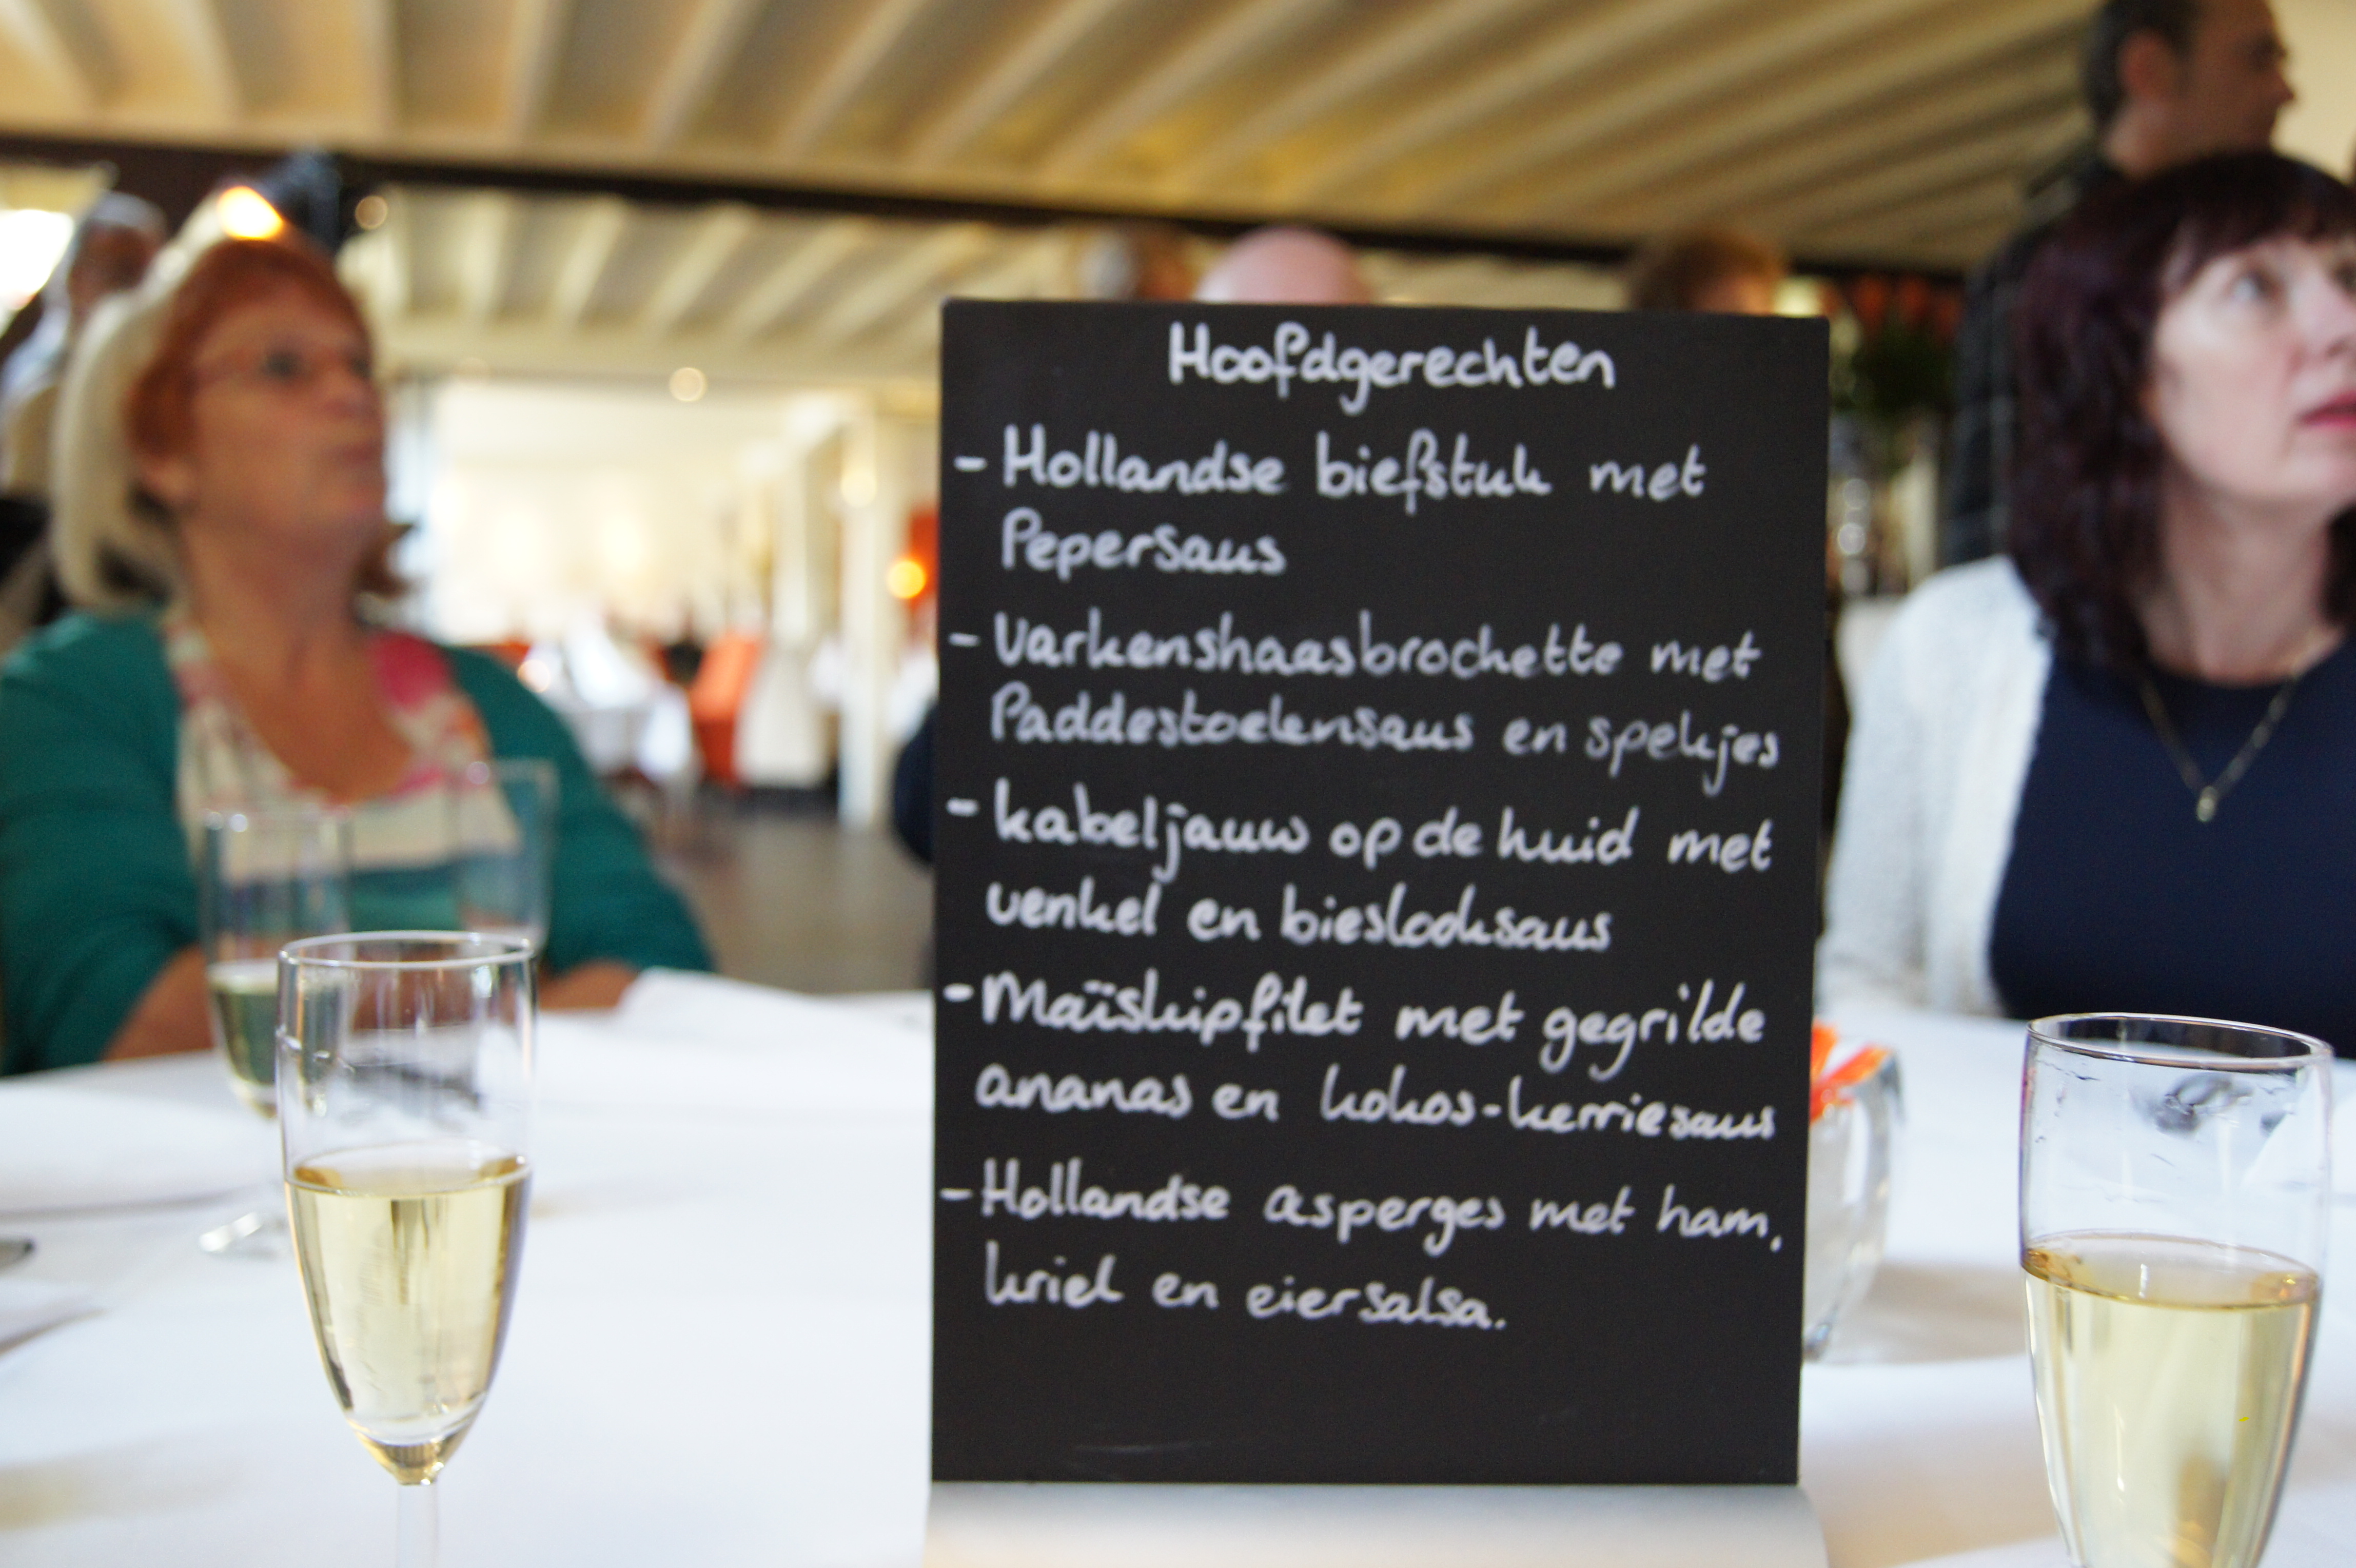 Hoofdgerechten
- Hollandse biefstuk met
Pepersaus
- Varkenshaasbrochette met
Paddestoelensaus en spekjes
- kabeljauw op de huid met
venkel en bieslooksaus
- Maïskipfilet met gegrilde
ananas en kokos-kerriesaus
- Hollandse asperges met ham,
kriel en eiersalsa.